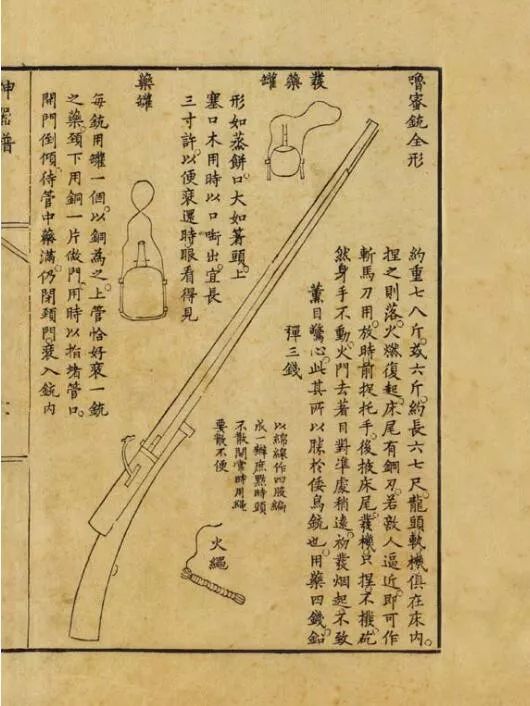 嚕蜜銃全形
約重七八斤或六斤約長六七尺龍頭軌機俱在床內
捏之則落火燃復起床尾有鋼刃若敵人逼近即可作
斬馬刀用放時前捉托手後掖床尾發機只捏不撥砣
然身手不動火門去著目對準處稍遠初發烟起不致
薰目驚心此其所以勝於倭鳥銃也用藥四錢鉛
彈三錢
發藥罐
形如蒸餅口大如箸頭上
塞口木用時以口啣出宜長
三寸許以便裝還時眼看得見
藥罐
每銃用罐一個以銅為之上管恰好裝一銃
之藥頸下用銅一片做門用時以指堵管口
開門倒傾待管中藥滿仍閉頸門裝入銃內
火繩
以綿線作四股編
成一辮庶點時頭
不散閒常時用繩
要散不便
神器譜